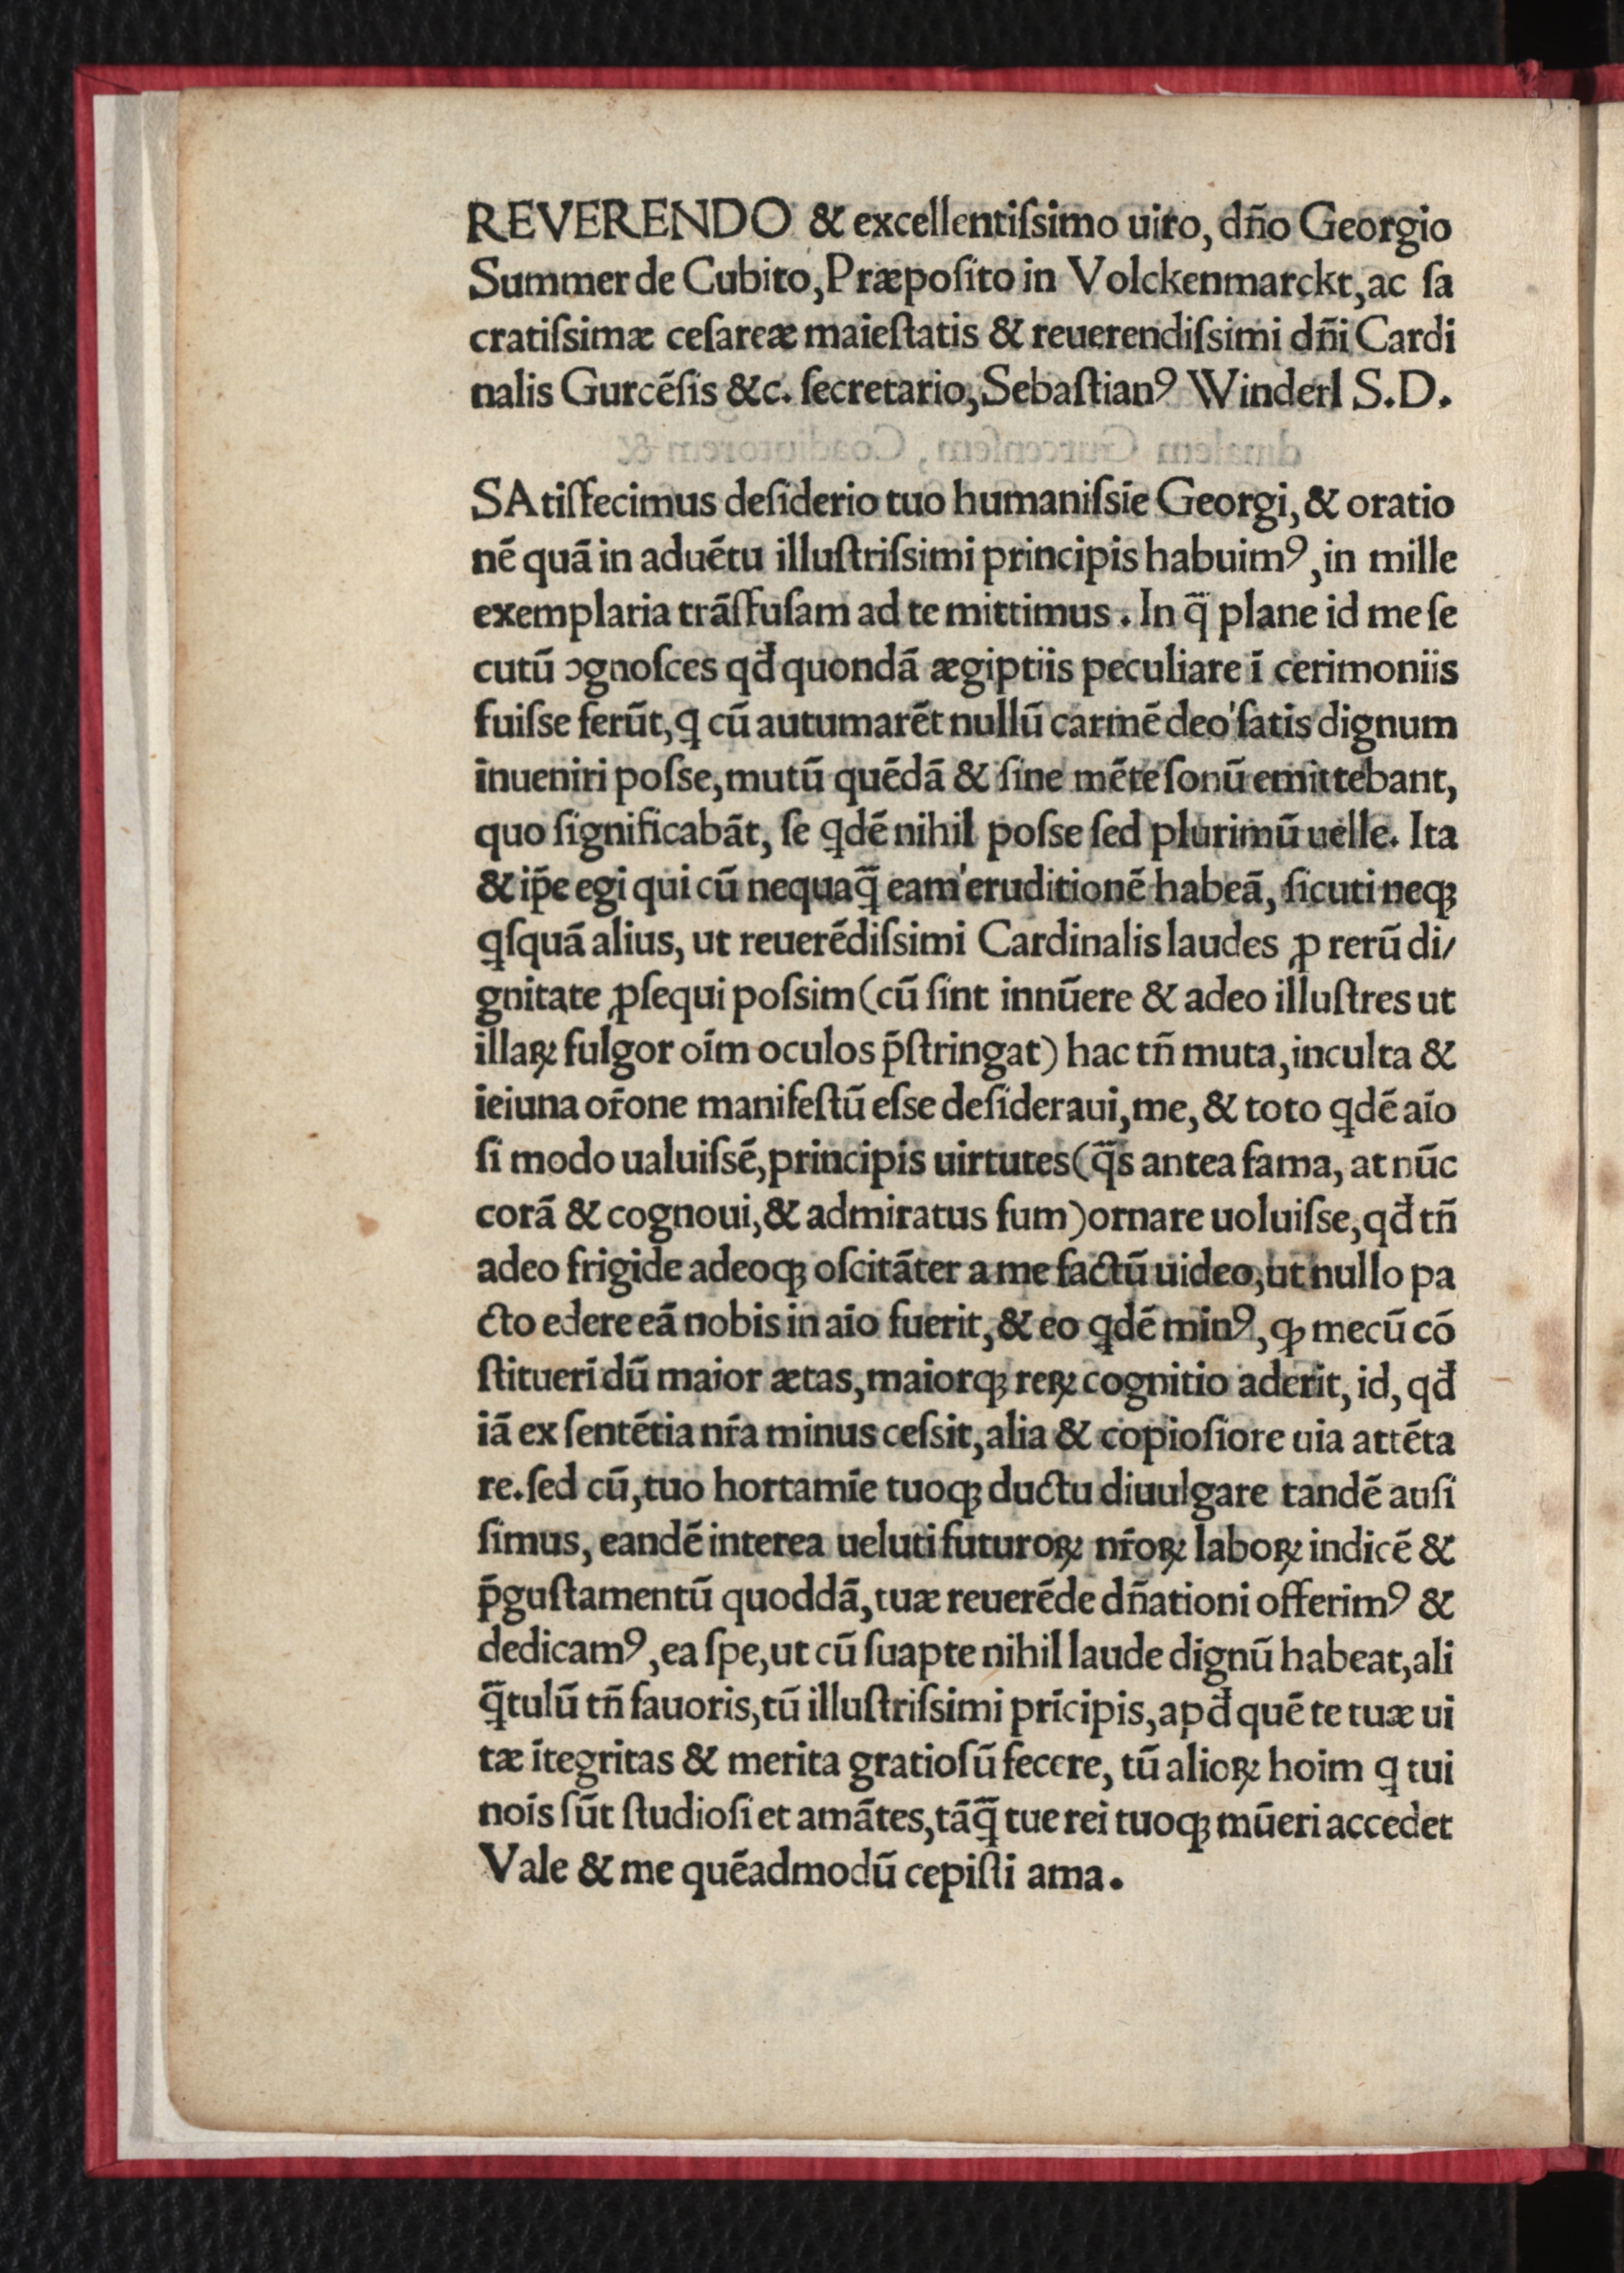 REVERENDO & excellentiſsimo uiro, dn̄o Georgio
Summer de Cubito, Præpoſito in Volckenmarckt, ac ſa
cratiſsimæ ceſareæ maieſtatis & reuerendiſsimi dn̄i Cardi
nalis Gurcēſis &c. ſecretario, Sebaſtianꝰ Winderl S.D.
SAtiſfecimus deſiderio tuo humaniſsīe Georgi, & oratio
nē quā in aduētu illuſtriſsimi principis habuimꝰ, in mille
exemplaria trāſfuſam ad te mittimus. In q̄ plane id me ſe
cutū ꝯgnoſces qđ quondā ægiptiis peculiare ī cerimoniis
fuiſse ferūt, ꝗ cū autumarēt nullū carmē deo ſatis dignum
inueniri poſse, mutū quēdā & ſine mēte ſonū emittebant,
quo ſignificabāt, ſe ꝗdē nihil poſse ſed plurimū uelle. Ita
& ip̄e egi qui cū nequaq̄ eam eruditionē habeā, ſicuti neqꝫ
ꝗſquā alius, ut reuerēdiſsimi Cardinalis laudes ꝓ rerū di/
gnitate ꝓſequi poſsim (cū ſint innūere & adeo illuſtres ut
illaꝝ fulgor oīm oculos p̄ſtringat) hac tn̄ muta, inculta &
ieiuna or̄one manifeſtū eſse deſideraui, me, & toto ꝗdē aīo
ſi modo ualuiſsē, principis uirtutes (q̄s antea fama, at nūc
corā & cognoui, & admiratus ſum) ornare uoluiſse, qđ tn̄
adeo frigide adeoqꝫ oſcitāter a me factū uideo, ut nullo pa
cto edere eā nobis in aīo fuerit, & eo ꝗdē minꝰ, ꝙ mecū cō
ſtituerī dū maior ætas, maiorqꝫ reꝝ cognitio aderit, id, qđ
iā ex ſentētia nr̄a minus ceſsit, alia & copioſiore uia attēta
re. ſed cū, tuo hortamīe tuoqꝫ ductu diuulgare tandē auſi
ſimus, eandē interea ueluti futuroꝝ nr̄oꝝ laboꝝ indicē &
p̄guſtamentū quoddā, tuæ reuerēde dn̄ationi offerimꝰ &
dedicamꝰ, ea ſpe, ut cū ſuapte nihil laude dignū habeat, ali
q̄tulū tn̄ fauoris, tū illuſtriſsimi prīcipis, apđ quē te tuæ ui
tæ ītegritas & merita gratioſū fecere, tū alioꝝ hoīm ꝗ tui
noīs ſūt ſtudioſi et amātes, tāq̄ tue rei tuoqꝫ mūeri accedet
Vale & me quēadmodū cepiſti ama.